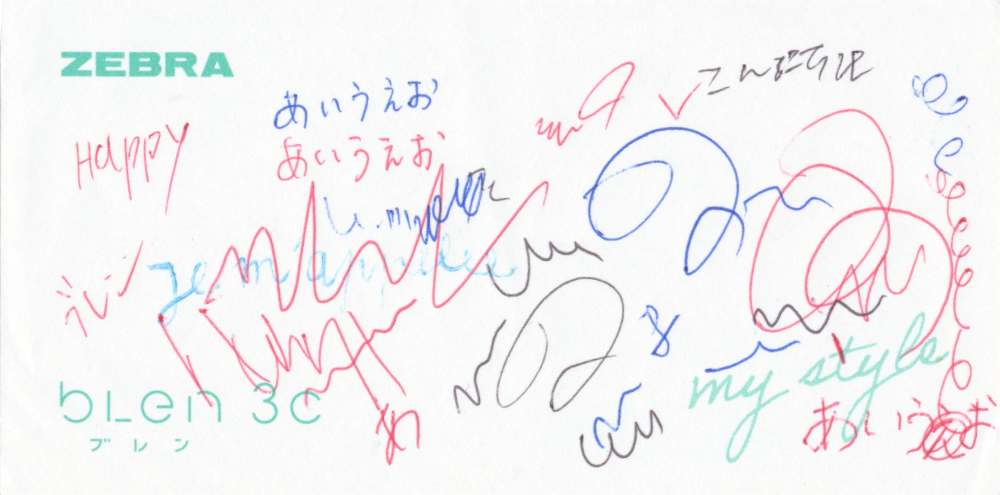 ZEBRA
こんにちは
あいうえお
あいうえお
Happy
Je m'appelle
ブレン
my style
bLen 3C
ブレン
あいうえお
め